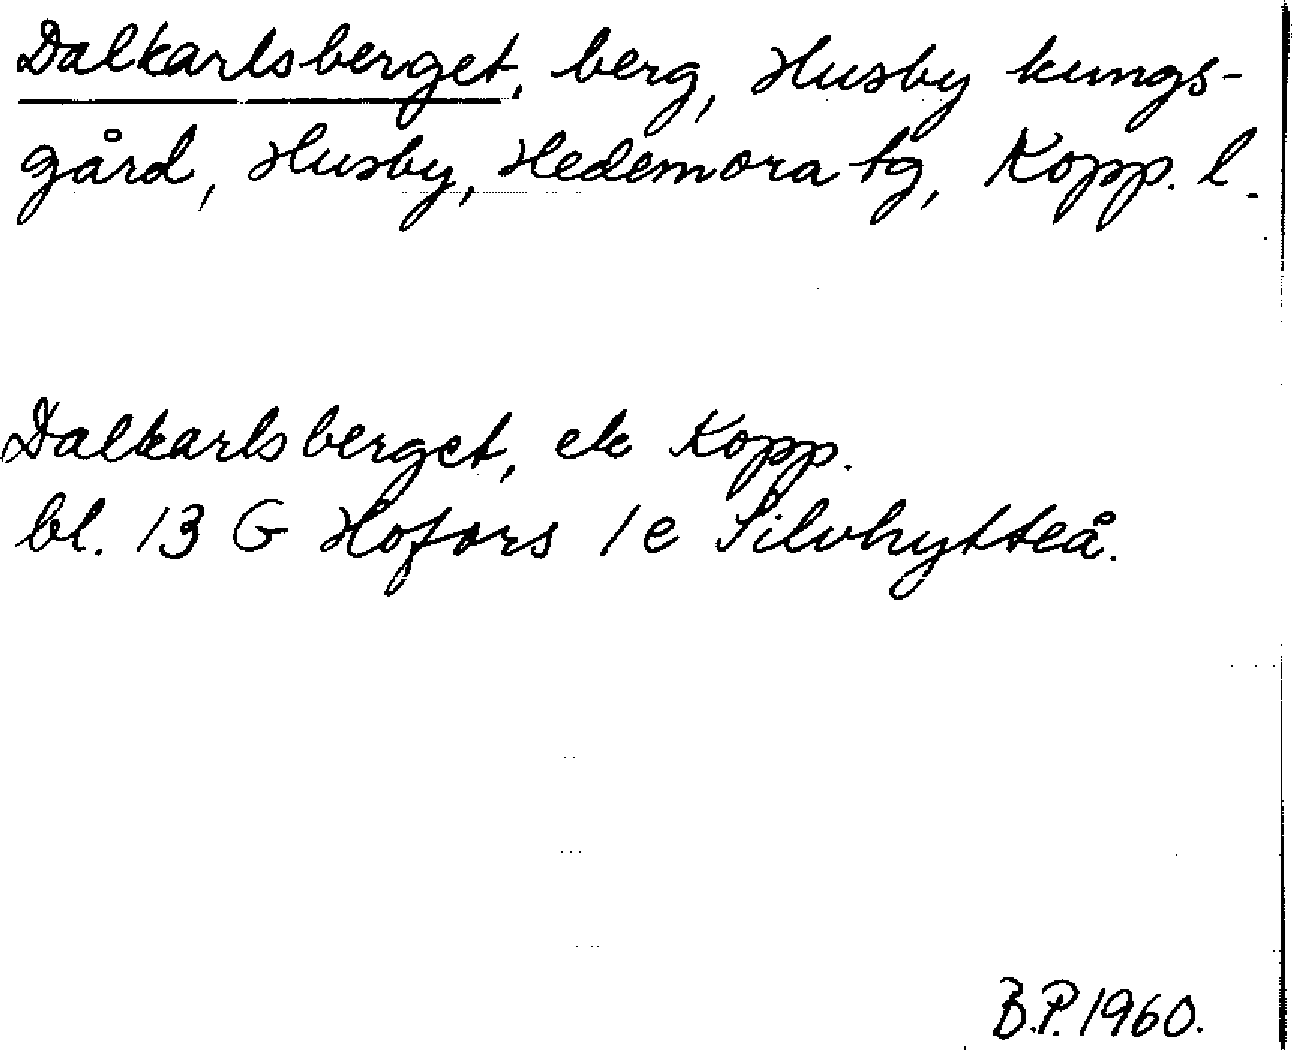 Dalkarlsberget, berg, Husby kungs-
gård, Husby, Hedemora tg, Kopp. l.
Dalkarlsberget, ek Kopp.
bl. 13 G Hofors 1e Silvhytteå.
B.P. 1960.